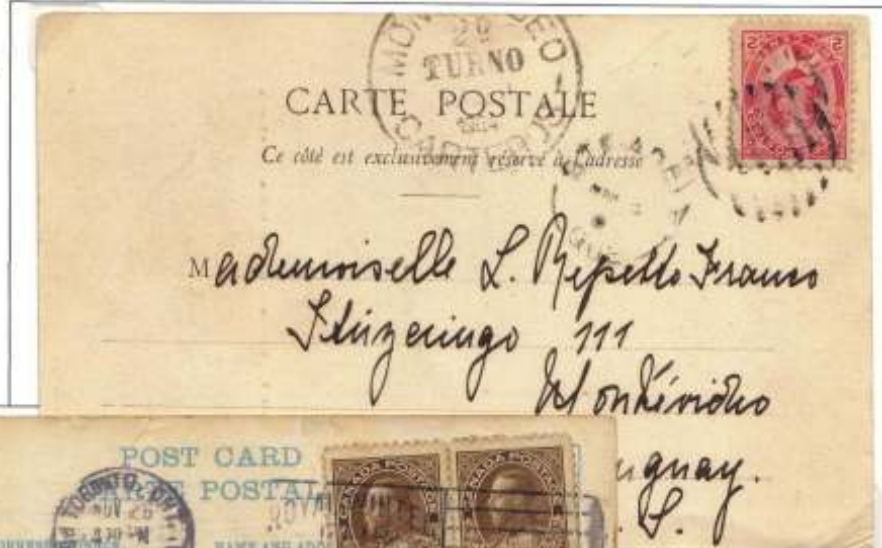 MONTEVIDEO
2º
TURNO
CARTERO
CARTE POSTALE
Ce côté est exclusivement réservé à l'adresse
2 2
Mademoiselle L. Repetto Franco
Ituzeingo 111
Montévidéo
guay.
S.
POST CARD
CARTE POSTAL
TORONTO, ONT
NOV 26
CANADA POSTAGE CANADA POSTAGE
NAME AND ADD